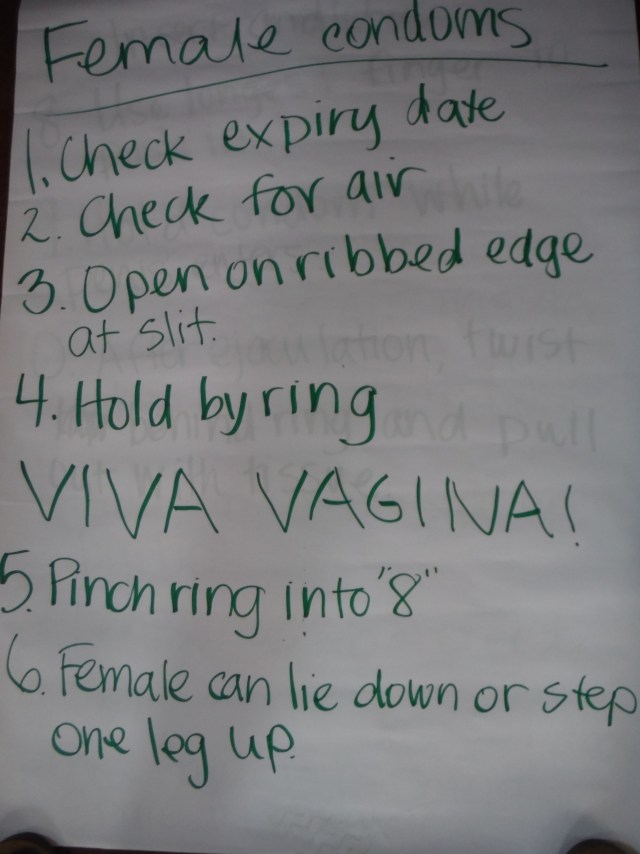 Female condoms
1. Check expiry date
2. Check for air
3. Open on ribbed edge
at slit.
4. Hold by ring
VIVA VAGINA!
5. Pinch ring into "8"
6. Female can lie down or step
one leg up.